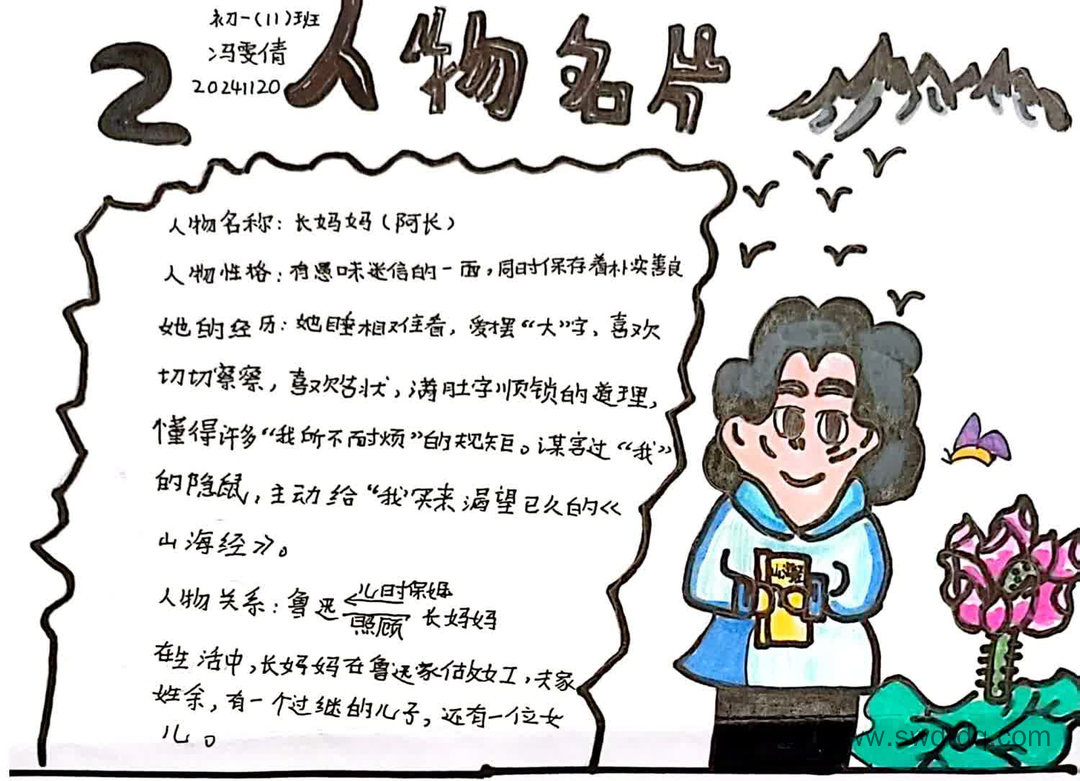 初一(11)班
冯雯倩
20241120
2
人物名片
人物名称：长妈妈(阿长)
人物性格：有愚昧迷信的一面，同时保存着朴实善良
她的经历：她睡相难看，爱摆“大”字、喜欢
切切察察，喜欢告状，满肚字顺锁的道理，
懂得许多“我所不耐烦”的规矩。谋害过“我”
的隐鼠，主动给“我”买来渴望已久的《
山海经》。
人物关系：鲁迅 儿时保姆 照顾 长妈妈
在生活中，长妈妈在鲁迅家做女工，夫家
姓余，有一个过继的儿子，还有一位女
儿。
山海经